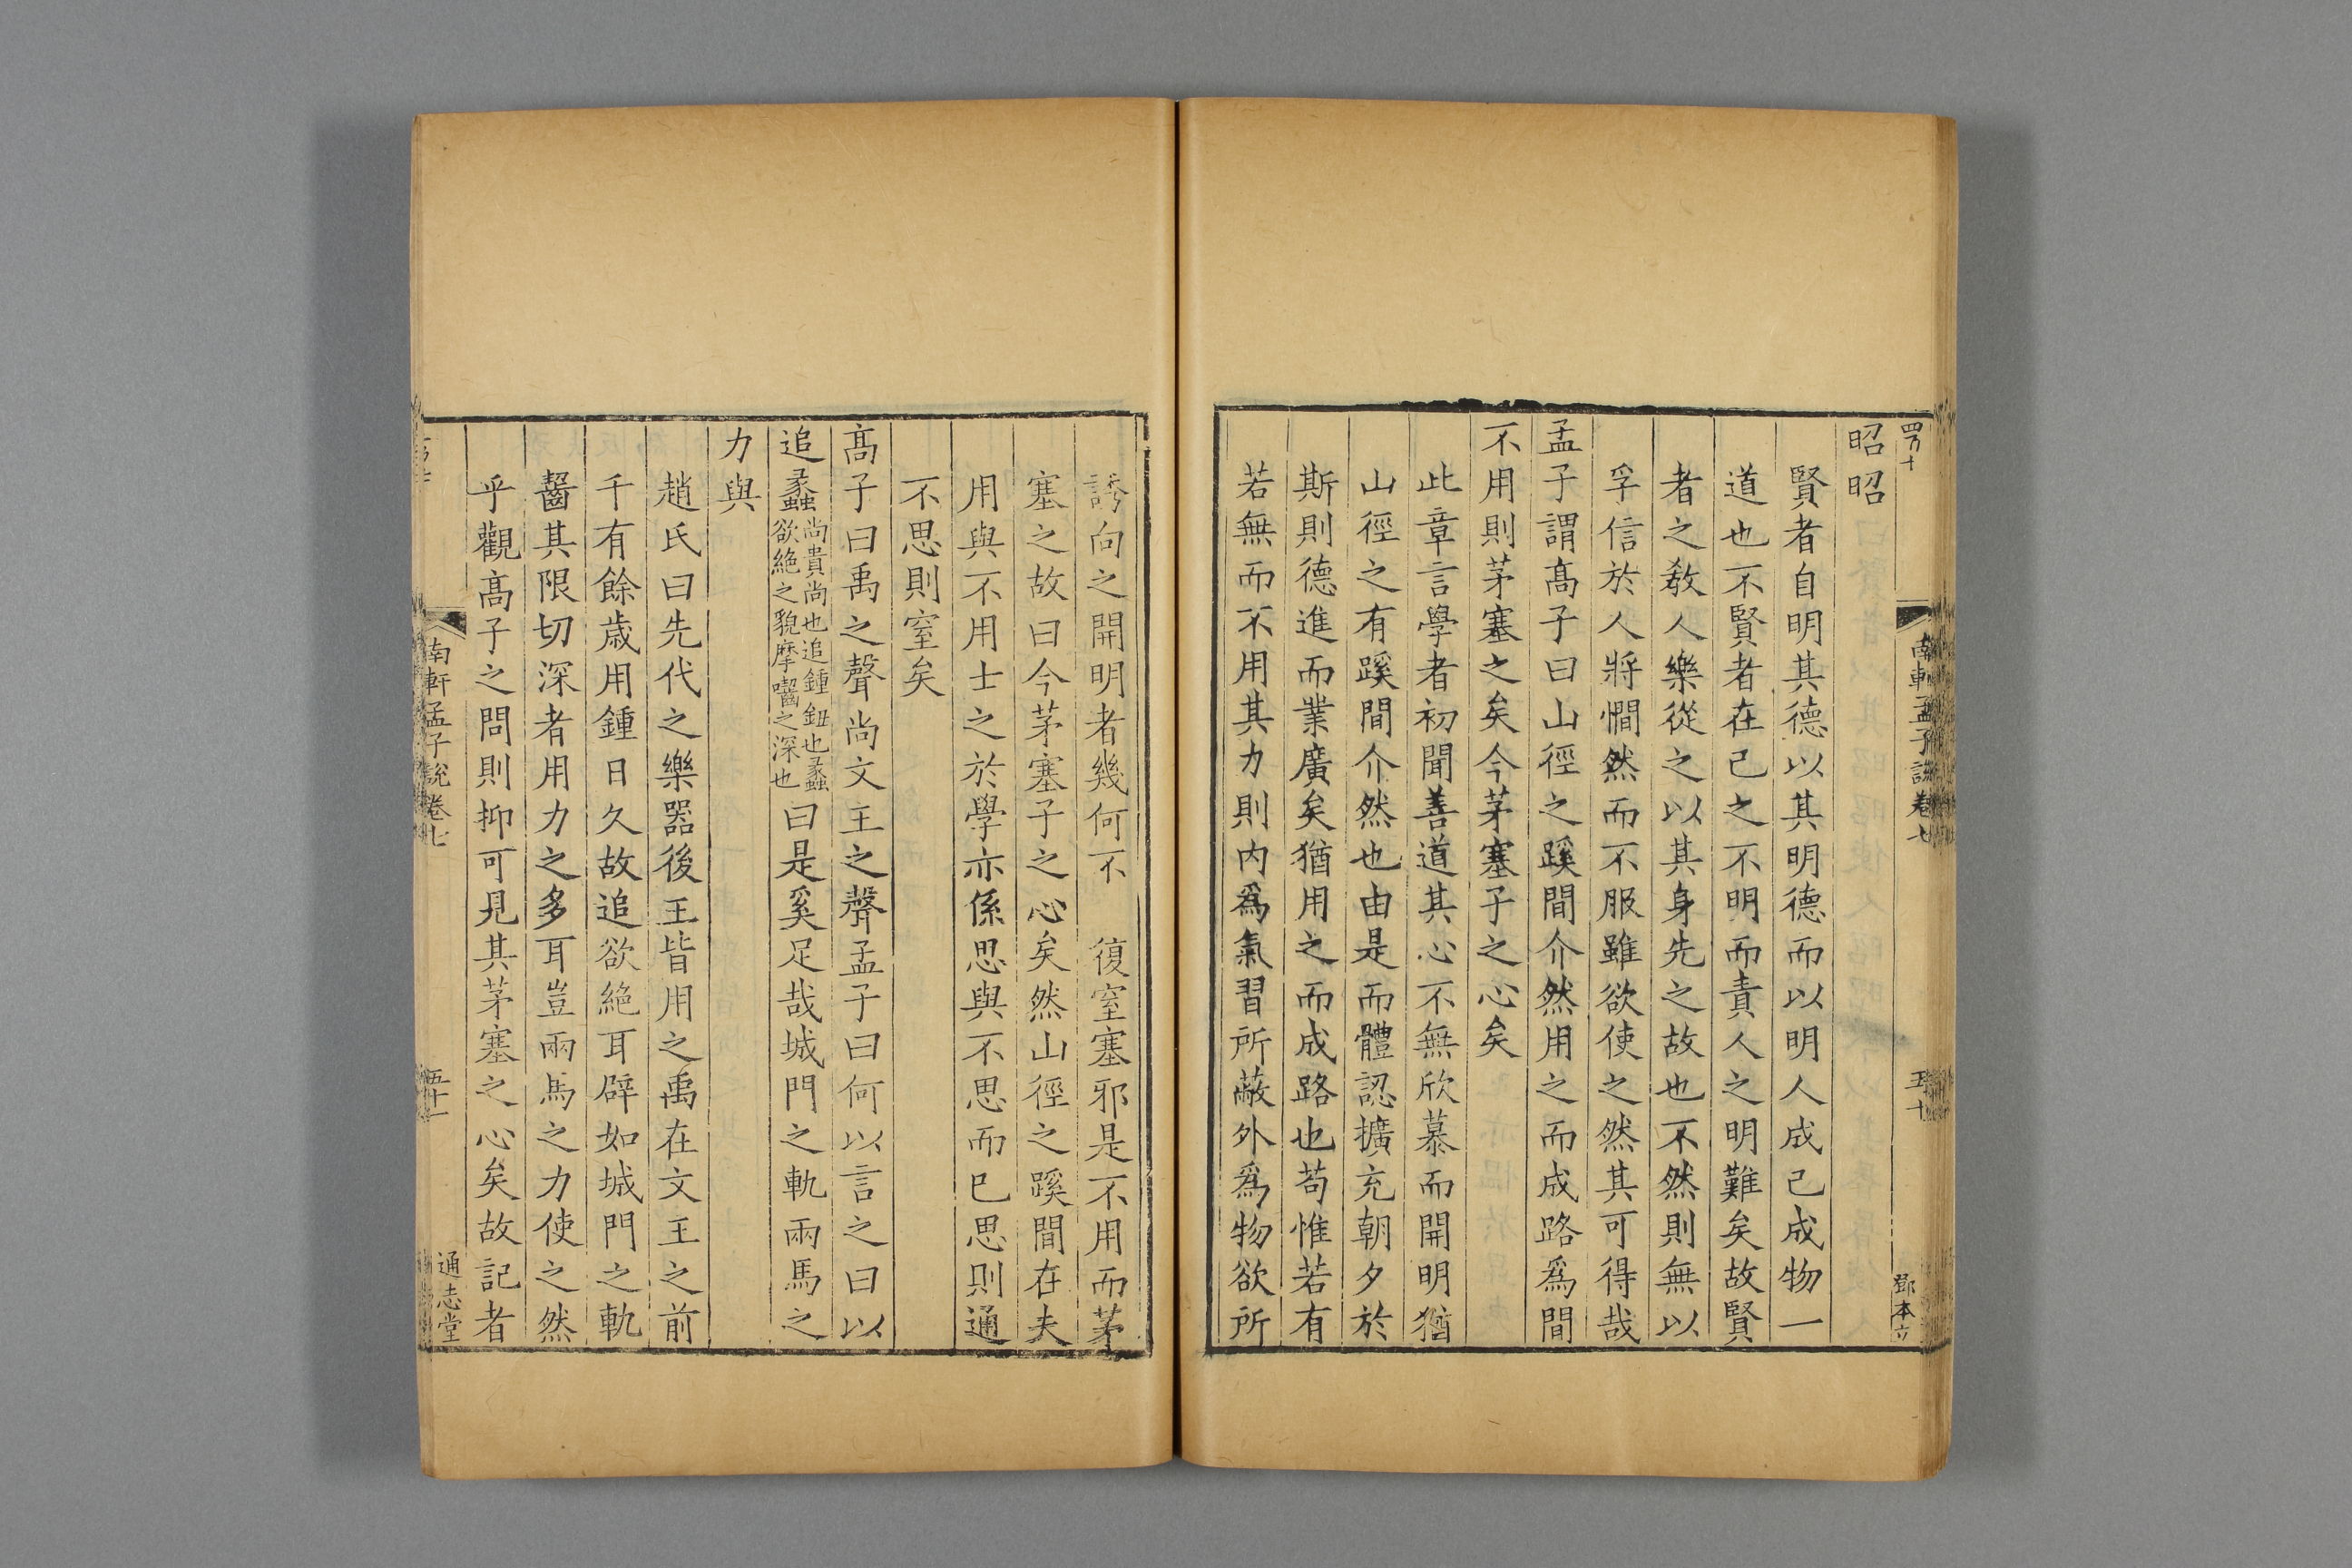 四百十
南軒孟子說卷七
五十
鄧本立
昭昭
賢者自明其德以其明德而以明人成己成物一
道也不賢者在己之不明而責人之明難矣故賢
者之敎人樂從之以其身先之故也不然則無以
孚信於人將憪然而不服雖欲使之然其可得哉
孟子謂髙子曰山徑之蹊間介然用之而成路爲間
不用則茅塞之矣今茅塞子之心矣
此章言學者初聞善道其心不無欣慕而開明猶
山徑之有蹊間介然也由是而體認擴充朝夕於
斯則德進而業廣矣猶用之而成路也苟惟若有
若無而不用其力則内爲氣習所蔽外爲物欲所
誘向之開明者幾何不 復窒塞邪是不用而茅
塞之故曰今茅塞子之心矣然山徑之蹊間在夫
用與不用士之於學亦係思與不思而已思則通
不思則窒矣
髙子曰禹之聲尚文王之聲孟子曰何以言之曰以
追蠡尚貴尚也追鍾鈕也蠡欲絶之貌摩囓之深也曰是奚足哉城門之軌兩馬之
力與
趙氏曰先代之樂器後王皆用之禹在文王之前
千有餘歳用鍾日久故追欲絶耳辟如城門之軌
齧其限切深者用力之多耳豈兩馬之力使之然
乎觀髙子之問則抑可見其茅塞之心矣故記者
南軒孟子說卷七
五十一
通志堂